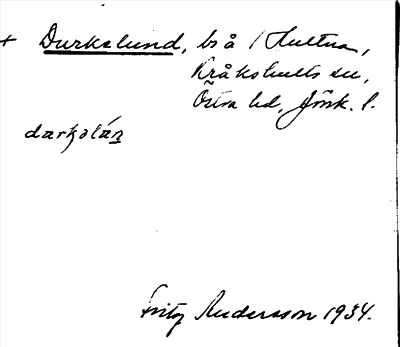 + Durkslund, ls å Hultna,
Kråkshults sn,
Östra hd, Jönk. l.
darkslán
Fritz Andersson 1934.